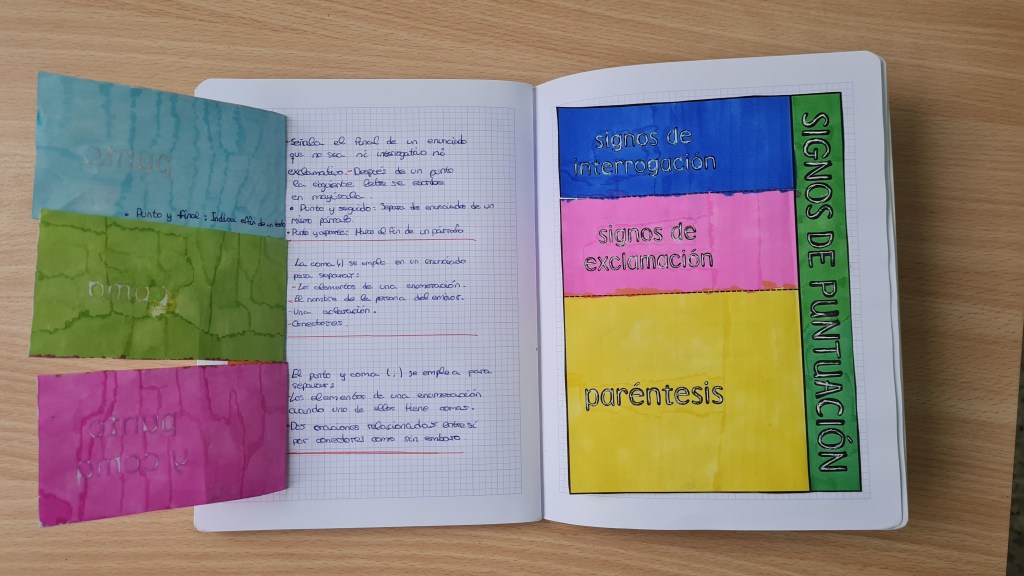 punto
• Punto y final: Indica el fin de un texto
coma
punto
y coma
-Señala el final de un enunciado
que no sea ni interrogativo ni
exclamativo. -Después de un punto
la siguiente letra se escribe
en mayúscula.
• Punto y seguido: Separa de enunciados de un
mismo párrafo
- Punto y aparte: Marca el fin de un párrafo
La coma (,) se emplea en un enunciado
para separar:
-Los elementos de una enumeración.
-El nombre de la persona del emisor.
-Una aclaración.
-Conectores.
El punto y coma (;) se emplea para
separar:
-Los elementos de una enumeración
cuando uno de ellos tiene comas.
-Dos oraciones relacionadas entre sí
por conectores como sin embargo
signos de
interrogación
signos de
exclamación
paréntesis
SIGNOS DE PUNTUACIÓN